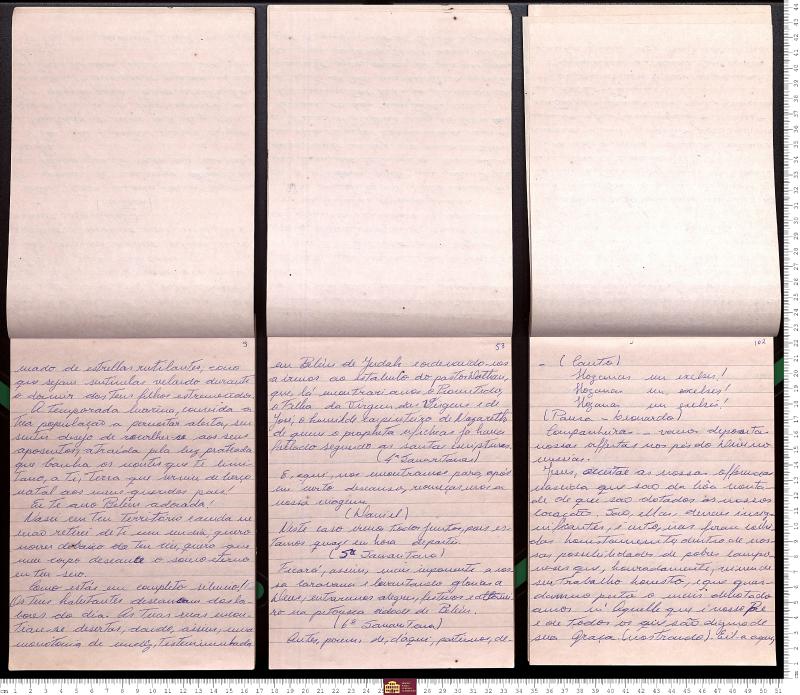 9
mado de estrellas rutilantes, como
que sejam sentinelas velando durante
o dormir dos teus filhos estremecidos.
A temporada hiberna, convida a
tua população a permanecer alerta, sem
sentir desejo de recolher-se aos seus
aposentos, atraida pela luz prateada
que banha os montes que te limi-
tam, a ti, terra que serviu de berço
natal aos meus queridos paes!
Eu te amo Belém adorada!
Nasci em teu territorio e ainda não
me retirei de ti um só dia, quero
morrer debaixo do teu céu, quero que
meu corpo descance o somno eterno
em teu seio.
Como estás em completo silencio!
Os teus habitantes descançam dos la-
bores do dia. As tuas ruas encon-
tram-se desertas, dando, assim, uma
monotonia de
53
em Belém de Judah e ordenando-nos
a irmos ao estabulo do pastor Nathan,
que lá encontrariamos o Promettido,
o Filho da Virgem das Virgens e de
José, o humilde carpinteiro de Nazareth
de quem o propheta
fallado segundo as santas escripturas.
(4ª Samaritana)
E, aqui, nos encontramos para após
um curto descanso, recomeçarmos a
nossa viagem.
(Daniel)
Neste caso iremos todos juntos, pois es-
tamos quasi em hora de partir.
(5ª Samaritana)
Ficará, assim, mais imponente a nos-
sa caravana e levantando glorias a
Deus, entraremos alegres, festivos e
na pitoresca cidade de Belém.
(6ª Samaritana)
Antes, porem, de, d'aqui, partirmos, de-
102
- (Canto)
Hozanas in excelsis!
Hozanas in excelsis!
Hozanas in excelsis!
(Pausa -
Companheiras - vamos depositar
nossas offertas aos pés do Divino
messias.
Jesus, acceitae as nossas offrendas
nascida que são da bôa vonta-
de de que são dotados os nossos
corações. São, ellas, demais insig-
nificantes, é certo, mas foram colhi-
das honestamente, dentro de nos-
sas possibilidades de pobres campo-
nezas que, honradamente, vivem de
seu trabalho honesto, e que guar-
damos para o mais dedicado
amor n'Aquelle que é nosso Pae
e de todos os que são dignos de
sua Graça. (mostrando) Eil-a aqui,